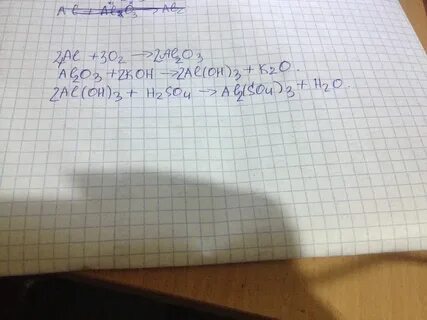 Al + Al₂O₃ → Al₂
2Al + 3O₂ → 2Al₂O₃
Al₂O₃ + 2KOH → 2Al(OH)₃ + K₂O.
2Al(OH)₃ + H₂SO₄ → Al₂(SO₄)₃ + H₂O.